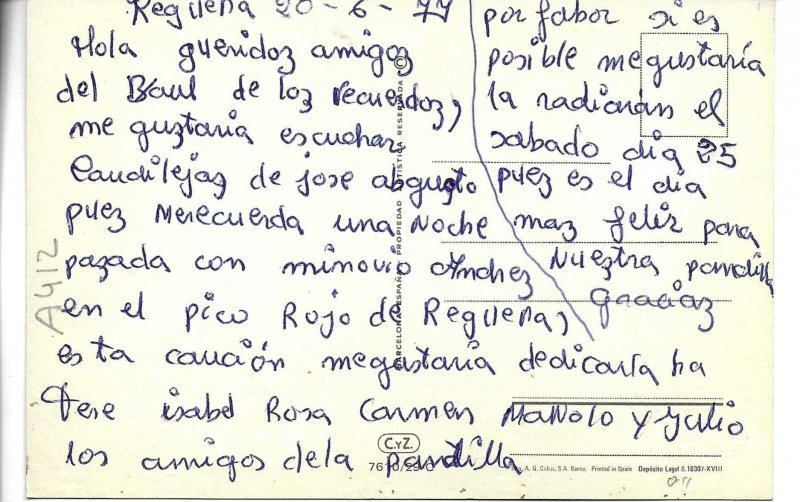 Regllena 20-6-77
Hola queridoz amigoz
del Baul de loz recuerdoz,
me guztaria escuchar
Candilejaz de jose abguzto
puez Merecuerda una Noche
pazada con minovio Andrez
en el pico Rojo de Regllena,
esta canción megustaria dedicarla ha
Tere isabel Rosa Carmen Manolo y Julio
los amigos dela pandilla
por fabor si es
posible megustaría
la radiaran el
sabado dia 25
puez es el dia
maz feliz para
Nueztra pandilla
Graciaz
A412
BARCELONA ESPAÑA PROPIEDAD ARTISTICA RESERVADA ©
C.yZ.
A. G. Cobas, S.A. Barna. Printed in Spain Depósito Legal B.16307-XVIII